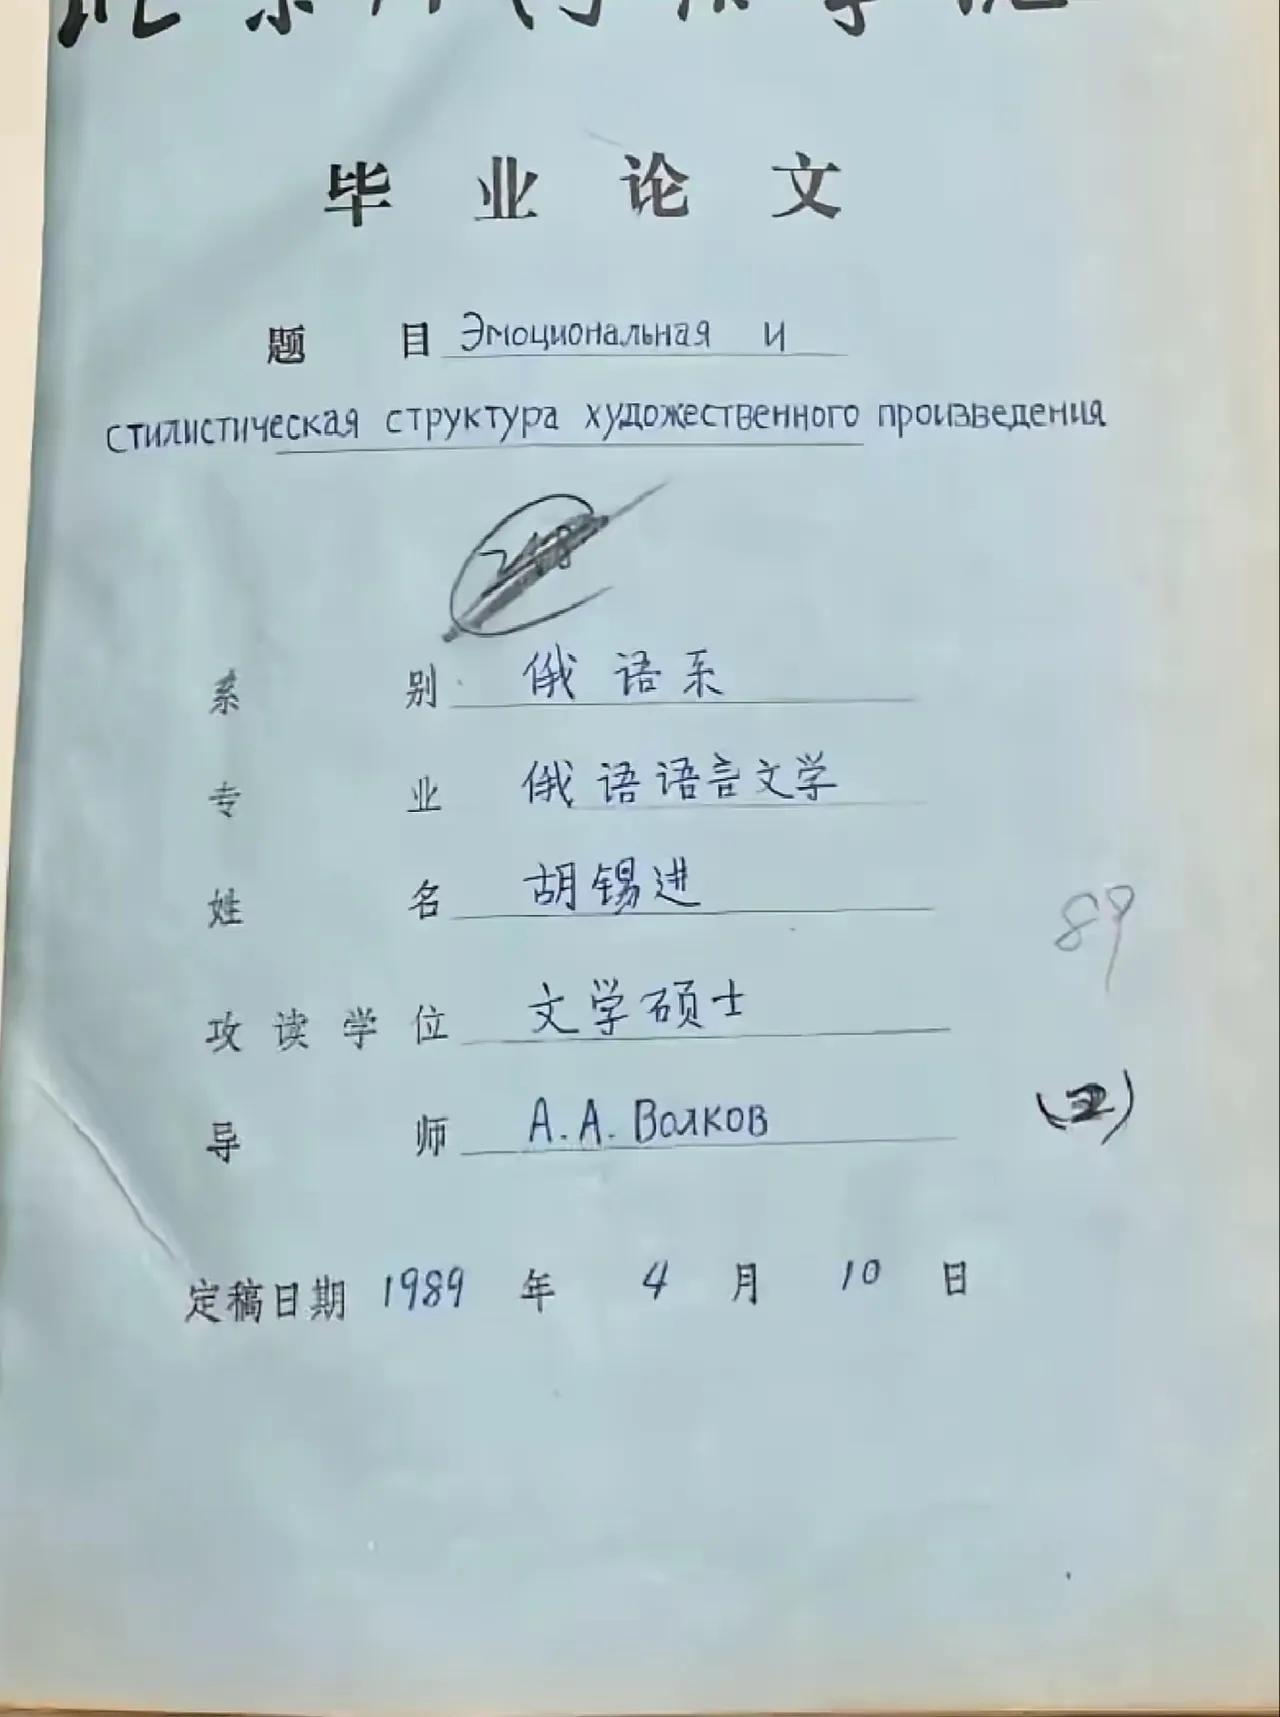 毕业论文
题目 Эмоциональная и
стилистическая структура художественного произведения
系别 俄语系
专业 俄语语言文学
姓名 胡锡进
89
攻读学位 文学硕士
导师 А.А. Волков
定稿日期 1989 年 4 月 10 日